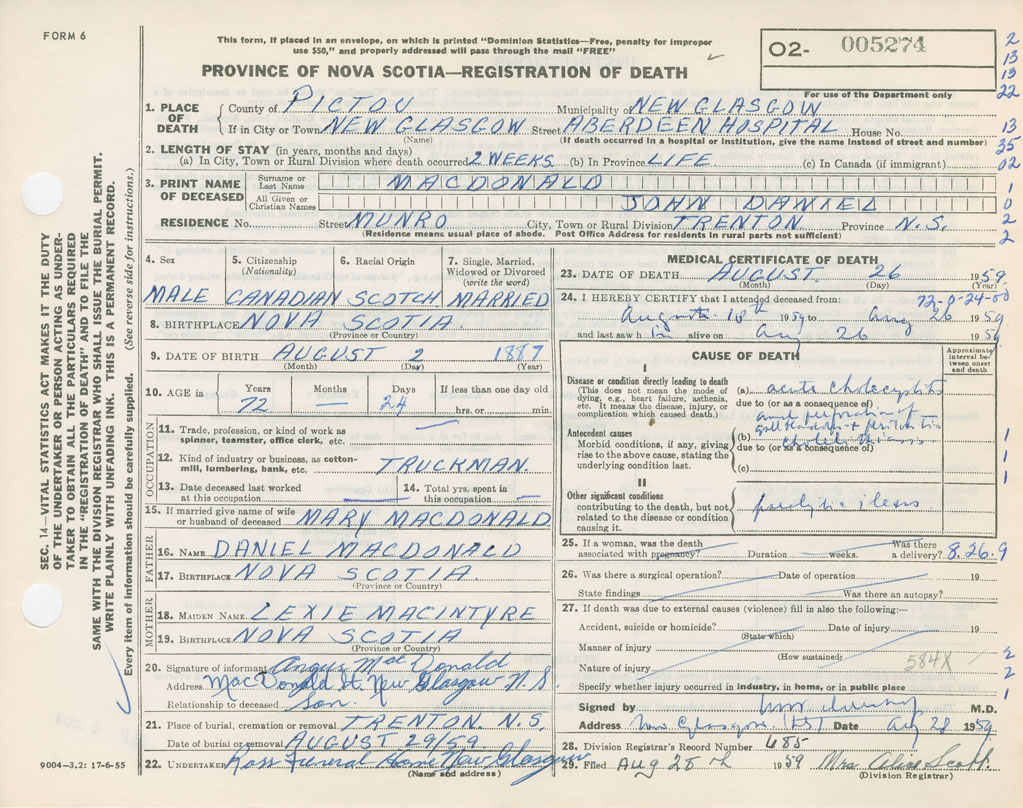 FORM 6
This form, if placed in an envelope, on which is printed "Dominion Statistics—Free, penalty for improper
use $50," and properly addressed will pass through the mail "FREE"
PROVINCE OF NOVA SCOTIA—REGISTRATION OF DEATH
02- 005274
For use of the Department only
2
13
13
22
13
35
02
1
0
2
2
1. PLACE OF DEATH County of PICTOU Municipality of NEW GLASGOW
If in City or Town NEW GLASGOW Street ABERDEEN HOSPITAL House No.
(Name) (If death occurred in a hospital or institution, give the name instead of street and number)
2. LENGTH OF STAY (in years, months and days)
(a) In City, Town or Rural Division where death occurred 2 WEEKS (b) In Province LIFE (c) In Canada (if immigrant)
3. PRINT NAME OF DECEASED Surname or Last Name MACDONALD
All Given or Christian Names JOHN DANIEL
RESIDENCE No. Street MUNRO City, Town or Rural Division TRENTON Province N.S.
(Residence means usual place of abode. Post Office Address for residents in rural parts not sufficient)
SEC. 14—VITAL STATISTICS ACT MAKES IT THE DUTY
OF THE UNDERTAKER OR PERSON ACTING AS UNDER-
TAKER TO OBTAIN ALL THE PARTICULARS REQUIRED
IN THE "REGISTRATION OF DEATH" AND TO FILE THE
SAME WITH THE DIVISION REGISTRAR WHO SHALL ISSUE THE BURIAL PERMIT.
WRITE PLAINLY WITH UNFADING INK. THIS IS A PERMANENT RECORD.
Every item of information should be carefully supplied. (See reverse side for instructions.)
4. Sex 5. Citizenship (Nationality) 6. Racial Origin 7. Single, Married, Widowed or Divorced (write the word)
MALE CANADIAN SCOTCH MARRIED
8. BIRTHPLACE NOVA SCOTIA
(Province or Country)
9. DATE OF BIRTH AUGUST 2 1887
(Month) (Day) (Year)
10. AGE in Years Months Days If less than one day old
72 — 24 hrs. or min.
OCCUPATION
11. Trade, profession, or kind of work as
spinner, teamster, office clerk, etc. —
12. Kind of industry or business, as cotton-
mill, lumbering, bank, etc. TRUCKMAN
13. Date deceased last worked at this occupation — 14. Total yrs. spent in this occupation —
15. If married give name of wife
or husband of deceased MARY MACDONALD
FATHER
16. NAME DANIEL MACDONALD
17. BIRTHPLACE NOVA SCOTIA
(Province or Country)
MOTHER
18. MAIDEN NAME LEXIE MACINTYRE
19. BIRTHPLACE NOVA SCOTIA
(Province or Country)
20. Signature of informant Angus MacDonald
Address MacDonald St. New Glasgow N.S.
Relationship to deceased Son.
21. Place of burial, cremation or removal TRENTON. N.S.
Date of burial or removal AUGUST 29/59.
22. UNDERTAKER Ross Funeral Home New Glasgow
(Name and address)
9004-3.2: 17-6-55
MEDICAL CERTIFICATE OF DEATH
23. DATE OF DEATH AUGUST 26 1959
(Month) (Day) (Year)
24. I HEREBY CERTIFY that I attended deceased from: 72-0-24-00
August 10th 1959 to Aug 26 1959
and last saw h im alive on Aug 26 1959
CAUSE OF DEATH
Approximate interval between onset and death
I
Disease or condition directly leading to death
(This does not mean the mode of
dying, e.g., heart failure, asthenia,
etc. It means the disease, injury, or
complication which caused death.)
(a) acute cholecystitis
due to (or as a consequence of)
and perforation of
gall bladder & peritonitis
Antecedent causes
Morbid conditions, if any, giving
rise to the above cause, stating the
underlying condition last.
(b) cholelithiasis
due to (or as a consequence of)
(c)
1
1
1
II
Other significant conditions
contributing to the death, but not
related to the disease or condition
causing it.
paralytic ileus
25. If a woman, was the death
associated with pregnancy? Duration weeks. Was there a delivery? 8.26.9
26. Was there a surgical operation? Date of operation 19
State findings Was there an autopsy?
27. If death was due to external causes (violence) fill in also the following:—
Accident, suicide or homicide? Date of injury 19
(State which)
Manner of injury
(How sustained)
Nature of injury 584X
2
2
1
Specify whether injury occurred in industry, in home, or in public place
Signed by M.D.
Address New Glasgow Date Aug 28 1959
28. Division Registrar's Record Number 485
29. Filed Aug 28th 1959 Mrs Alice Scott
(Division Registrar)